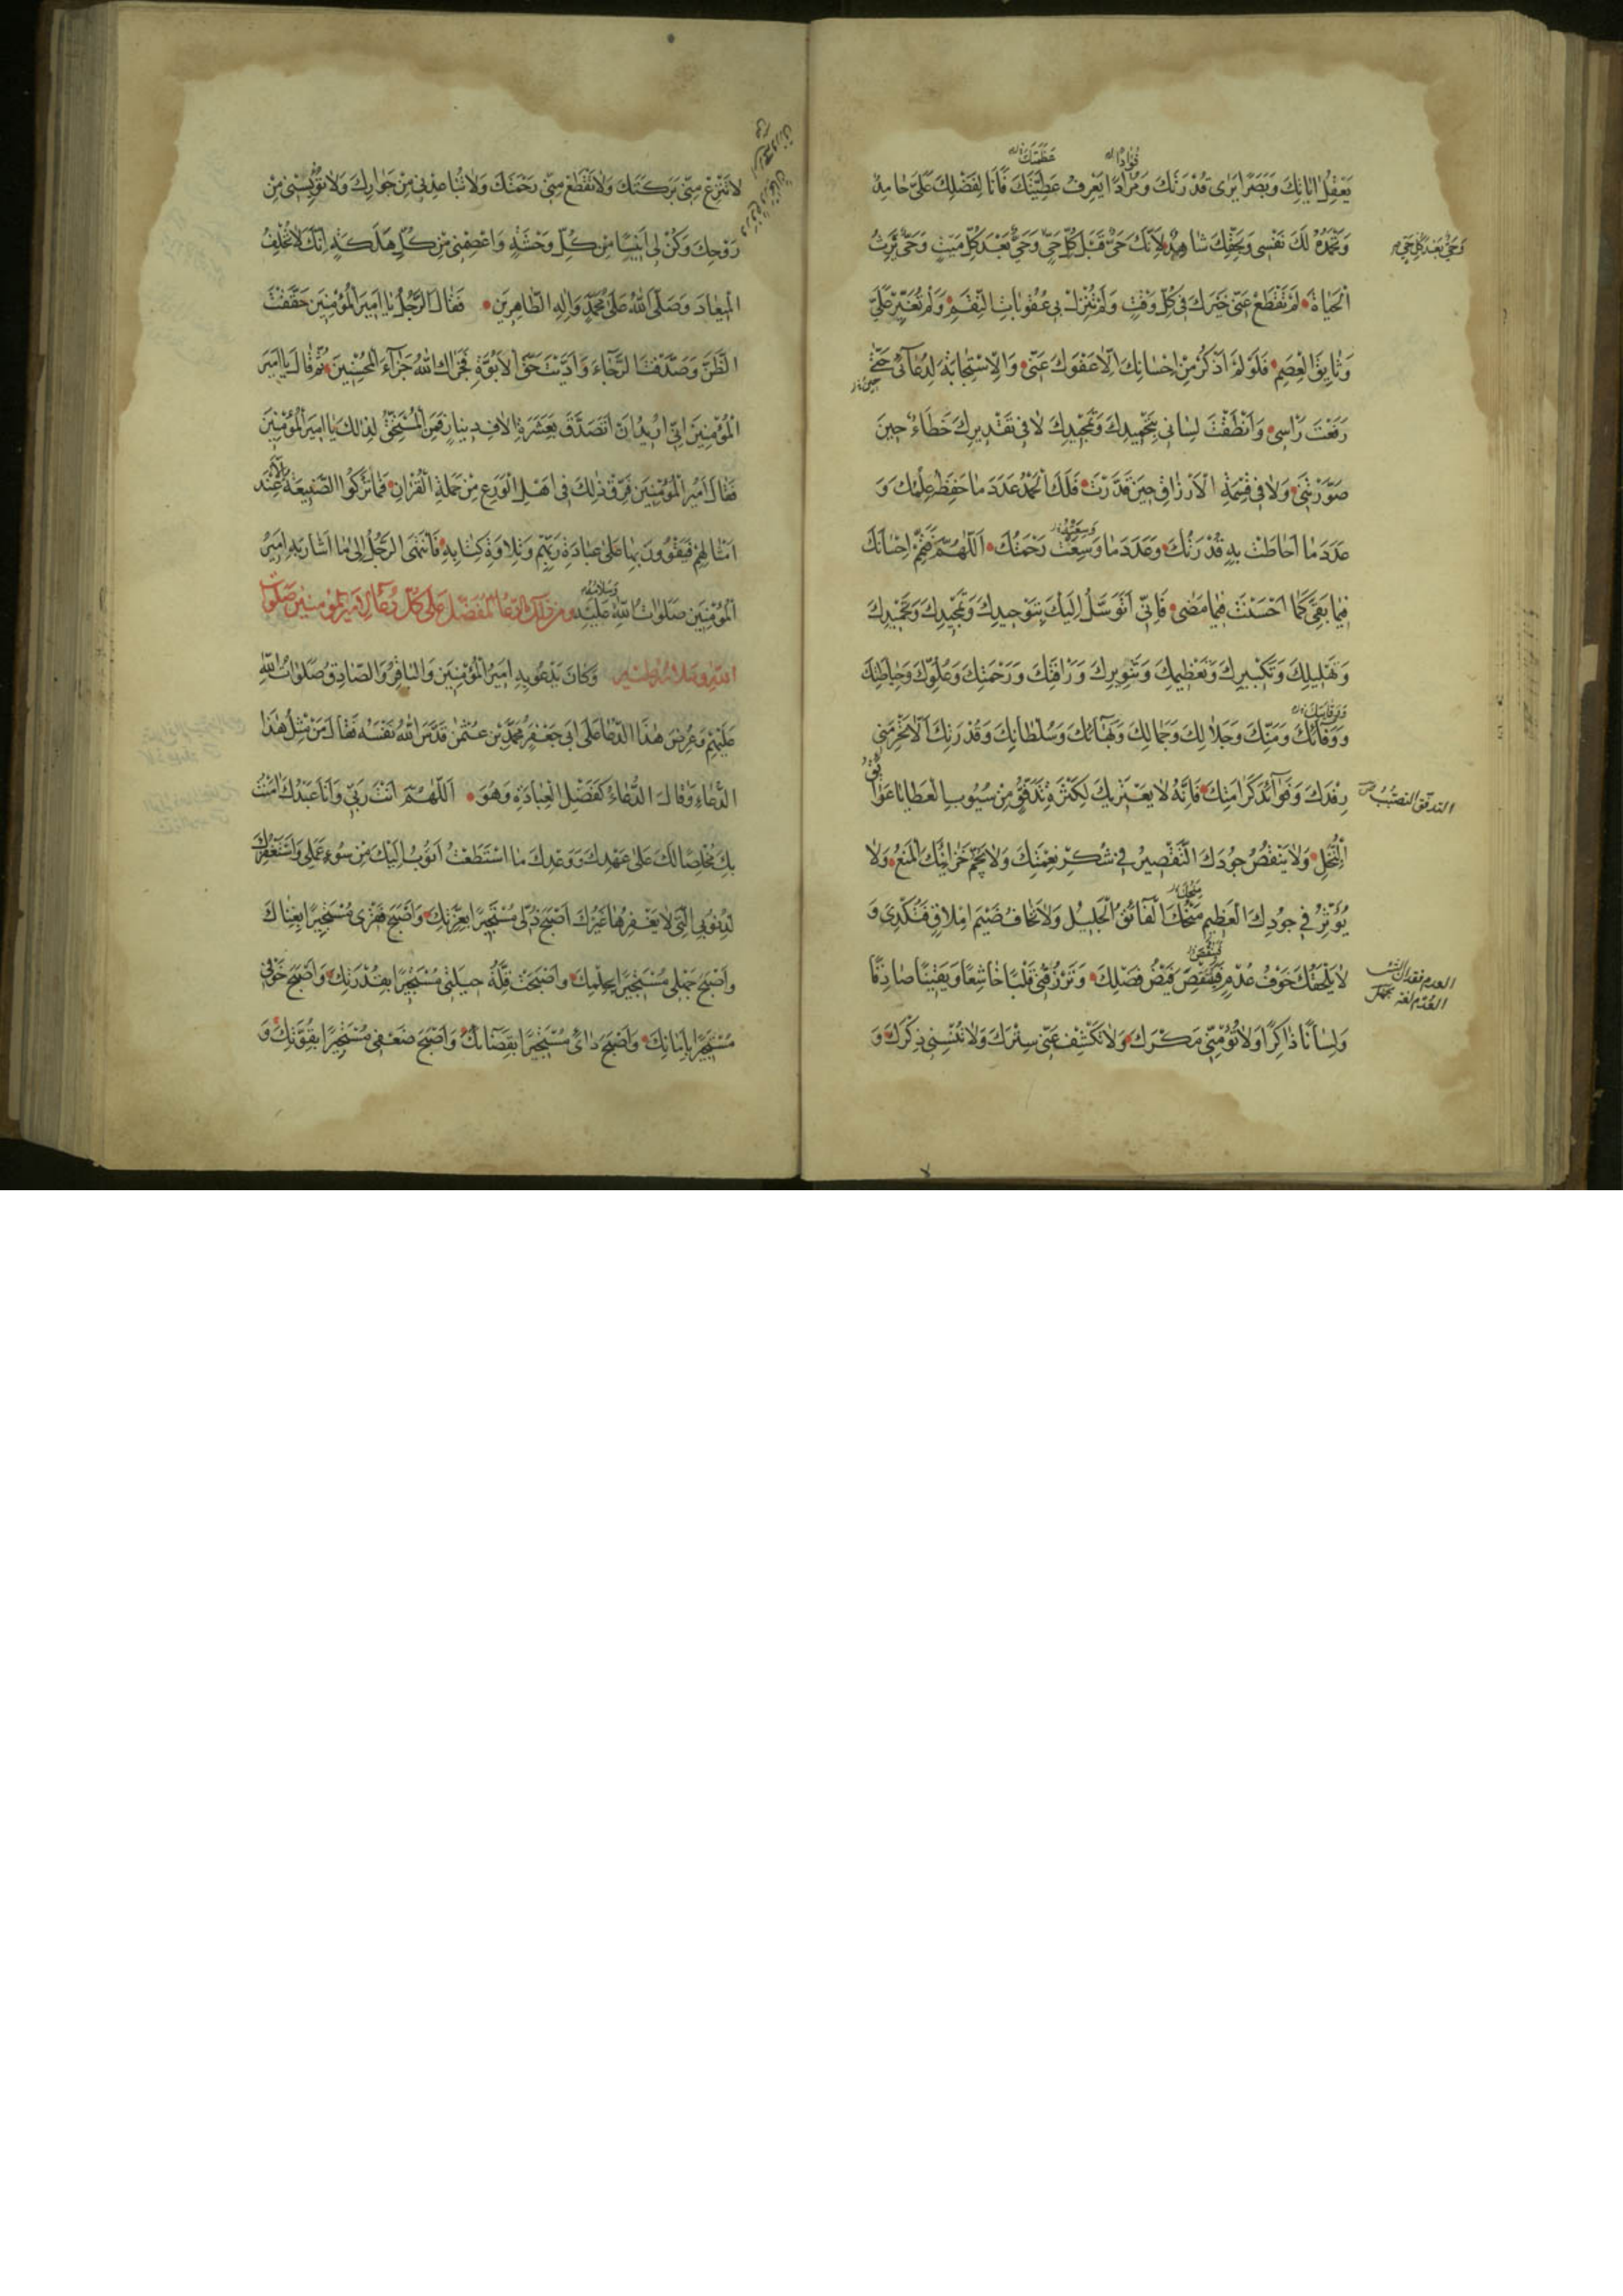 يَعْقِلُ اٰيَاتِكَ وَبَصَرًا يَرٰى قُدْرَتَكَ وَفُؤَادًا يَعْرِفُ عَطِيَّتَكَ فَاَنَا لِفَضْلِكَ عَلَىَّ حَامِدٌ
وَتَحْمَدُهُ لَكَ نَفْسِي وَبِحَقِّكَ شَاهِدٌ لِاَنَّكَ حَيٌّ قَبْلَ كُلِّ حَيٍّ وَحَيٌّ بَعْدَ كُلِّ مَيِّتٍ وَحَيٌّ تَرِثُ
الْحَيَاةَ لَمْ تَقْطَعْ عَنِّي خَيْرَكَ فِي كُلِّ وَقْتٍ وَلَمْ تُنْزِلْ بِي عُقُوبَاتِ النِّقَمِ وَلَمْ تُغَيِّرْ عَلَيَّ
وَثَايِقَ الْعِصَمِ فَلَوْ لَمْ اَذْكُرْ مِنْ اِحْسَانِكَ اِلَّا عَفْوَكَ عَنِّي وَالْاِسْتِجَابَةَ لِدُعَآئِي حَتّٰى
رَفَعْتُ رَاْسِي وَاَنْطَقْتَ لِسَانِي بِتَحْمِيدِكَ وَتَمْجِيدِكَ لَا فِي تَقْدِيرِكَ خَطَاءٌ حِينَ
صَوَّرْتَنِي وَلَا فِي قِسْمَةِ الْاَرْزَاقِ حِينَ قَدَّرْتَ فَلَكَ الْحَمْدُ عَدَدَ مَا حَفِظَ عِلْمُكَ وَ
عَدَدَ مَا اَحَاطَتْ بِهِ قُدْرَتُكَ وَعَدَدَ مَا وَسِعَتْ رَحْمَتُكَ اَللّٰهُمَّ فَتَمِّمْ اِحْسَانَكَ
فِيمَا بَقِيَ كَمَا اَحْسَنْتَ فِيمَا مَضٰى فَاِنِّي اَتَوَسَّلُ اِلَيْكَ بِتَوْحِيدِكَ وَتَمْجِيدِكَ وَتَحْمِيدِكَ
وَتَهْلِيلِكَ وَتَكْبِيرِكَ وَتَعْظِيمِكَ وَتَنْوِيرِكَ وَرَاْفَتِكَ وَرَحْمَتِكَ وَعُلُوِّكَ وَحِيَاطَتِكَ
وَوَقَائِكَ وَمَنِّكَ وَجَلَالِكَ وَجَمَالِكَ وَبَهَآئِكَ وَسُلْطَانِكَ وَقُدْرَتِكَ اَلَّا تَحْرِمَنِي
رِفْدَكَ وَفَوَآئِدَ كَرَامَتِكَ فَاِنَّهُ لَا يَعْتَرِيكَ لِكَثْرَةِ مَا يَتَدَفَّقُ مِنْ سُيُوبِ الْعَطَايَا عَوَائِقُ
الْبُخْلِ وَلَا يَنْقُصُ جُودَكَ التَّقْصِيرُ فِي شُكْرِ نِعْمَتِكَ وَلَا يُجِمُّ خَزَائِنَكَ الْمَنْعُ وَلَا
يُؤَثِّرُ فِي جُودِكَ الْعَظِيمِ مِنَحُكَ الْفَائِقُ الْجَلِيلُ وَلَا تَخَافُ ضَيْمَ اِمْلَاقٍ فَتُكْدِيَ وَ
لَا يَلْحَقُكَ خَوْفُ عُدْمٍ فَيَنْقُصَ فَيْضُ فَضْلِكَ وَتَرْزُقُنِي قَلْبًا خَاشِعًا وَيَقِينًا صَادِقًا
وَلِسَانًا ذَاكِرًا وَلَا تُؤْمِنِّي مَكْرَكَ وَلَا تَكْشِفْ عَنِّي سِتْرَكَ وَلَا تُنْسِنِي ذِكْرَكَ وَ
عَظَمَتَكَ
فُؤَادًا
وَحَيٌّ بَعْدَ كُلِّ حَيٍّ
التدفّق التصبّب
العدم فقدان الشىء
لَا تَنْزِعْ مِنِّي بَرَكَتَكَ وَلَا تَقْطَعْ مِنِّي رَحْمَتَكَ وَلَا تُبَاعِدْنِي مِنْ جَوَارِكَ وَلَا تُؤْيِسْنِي مِنْ
رَوْحِكَ وَكُنْ لِي اَنِيسًا مِنْ كُلِّ وَحْشَةٍ وَاعْصِمْنِي مِنْ كُلِّ هَلَكَةٍ اِنَّكَ لَا تُخْلِفُ
الْمِيعَادَ وَصَلَّى اللهُ عَلٰى مُحَمَّدٍ وَاٰلِهِ الطَّاهِرِينَ فَقَالَ الرَّجُلُ يَا اَمِيرَ الْمُؤْمِنِينَ حَقَّقْتَ
الظَّنَّ وَصَدَّقْتَ الرَّجَاءَ وَاَدَّيْتَ حَقَّ الْاُبُوَّةِ فَجَزَاكَ اللهُ جَزَآءَ الْمُحْسِنِينَ ثُمَّ قَالَ يَا اَمِيرَ
الْمُؤْمِنِينَ اِنِّي اُرِيدُ اَنْ اَتَصَدَّقَ بِعَشَرَةِ اٰلَافِ دِينَارٍ فَمَنِ الْمُسْتَحِقُّ لِذٰلِكَ يَا اَمِيرَ الْمُؤْمِنِينَ
فَقَالَ اَمِيرُ الْمُؤْمِنِينَ فَرِّقْ ذٰلِكَ فِي اَهْلِ الْوَرَعِ مِنْ حَمَلَةِ الْقُرْاٰنِ فَمَا تَزْكُوا الصَّنِيعَةُ اِلَّا عِنْدَ
اَمْثَالِهِمْ فَيَتَقَوَّوْنَ بِهَا عَلٰى عِبَادَةِ رَبِّهِمْ وَتِلَاوَةِ كِتَابِهِ فَانْتَهَى الرَّجُلُ اِلٰى مَا اَشَارَ بِهِ اَمِيرُ
الْمُؤْمِنِينَ صَلَوَاتُ اللهِ عَلَيْهِ ومن ذلك الدّعاء المفضّل على كلّ دعاء لامير المؤمنين صلوات
الله وسلامه عليه وَكَانَ يَدْعُو بِهِ اَمِيرُ الْمُؤْمِنِينَ وَالْبَاقِرُ وَالصَّادِقُ صَلَوَاتُ اللهِ
عَلَيْهِمْ وَعُرِضَ هٰذَا الدُّعَاءُ عَلٰى اَبِي جَعْفَرٍ مُحَمَّدِ بْنِ عُثْمٰنَ قَدَّسَ اللهُ نَفْسَهُ فَقَالَ مَنْ مِثْلُ هٰذَا
الدُّعَاءِ وَقَالَ الدُّعَاءُ كَفَضْلِ الْعِبَادَةِ وَهُوَ اَللّٰهُمَّ اَنْتَ رَبِّي وَاَنَا عَبْدُكَ اٰمَنْتُ
بِكَ مُخْلِصًا لَكَ عَلٰى عَهْدِكَ وَوَعْدِكَ مَا اسْتَطَعْتُ اَتُوبُ اِلَيْكَ مِنْ سُوءِ عَمَلِي وَاَسْتَغْفِرُكَ
لِذُنُوبِي الَّتِي لَا يَغْفِرُهَا غَيْرُكَ اَصْبَحَ ذُلِّي مُسْتَجِيرًا بِعِزَّتِكَ وَاَصْبَحَ فَقْرِي مُسْتَجِيرًا بِغِنَاكَ
وَاَصْبَحَ جَهْلِي مُسْتَجِيرًا بِحِلْمِكَ وَاَصْبَحَتْ قِلَّةُ حِيلَتِي مُسْتَجِيرًا بِقُدْرَتِكَ وَاَصْبَحَ خَوْفِي
مُسْتَجِيرًا بِاَمَانِكَ وَاَصْبَحَ دَائِي مُسْتَجِيرًا بِقَضَائِكَ وَاَصْبَحَ ضَعْفِي مُسْتَجِيرًا بِقُوَّتِكَ وَ